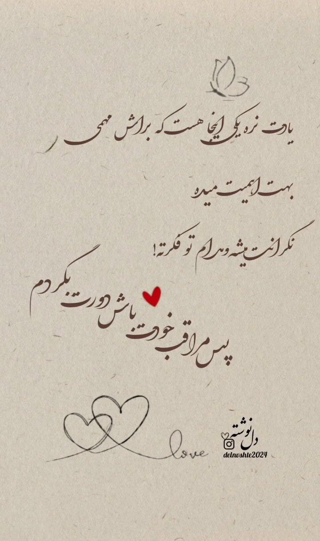 یادت نره یکی اینجا هست که براش مهمی
بهت اهمیت میده
نگرانت میشه و مدام تو فکرته!
پس مراقب خودت باش دورت بگردم
love
دل نوشته
delneshte2024